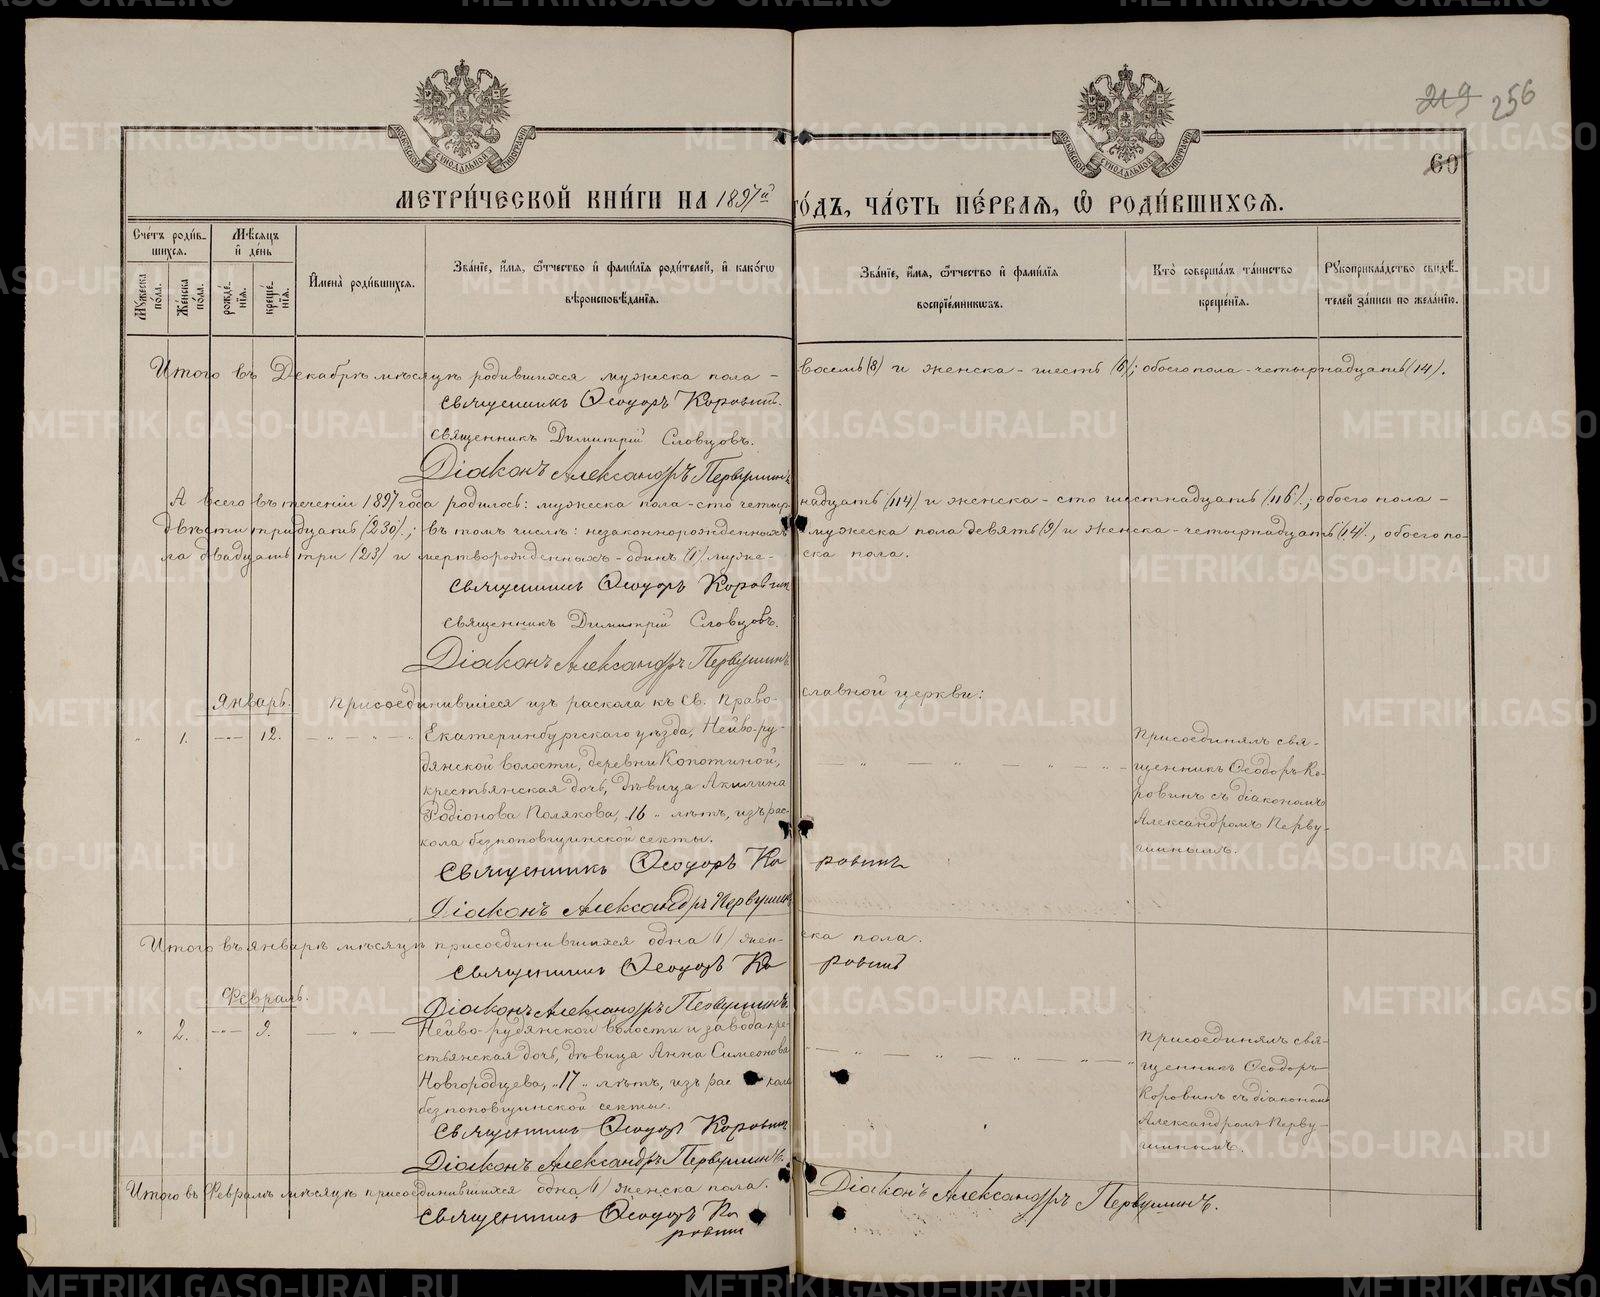 219 256
60
МЕТРИ́ЧЕСКОЙ КНИ́ГИ НА 1897й ГО́ДЪ, ЧА́СТЬ ПЕ́РВАЯ, Ѡ РОДИ́ВШИХСЯ.
Сче́тъ роди́вшихся.
Мѣсяцъ и́ де́нь
Мꙋжеска по́ла.
Же́нска по́ла.
рожде́нїя.
креще́нїя.
И́мена̀ роди́вшихся.
Зва́нїе, и́мя, ѻ҆́тчество и́ фами́лїя роди́телей, и́ како́гѡ вѣроисповѣ́данїя.
Зва́нїе, и́мя, ѻ҆́тчество и́ фами́лїя воспрїе́мникѡвъ.
Кто̀ соверша́лъ та́инство креще́нїя.
Рꙋкоприкла́дство свидѣ́телей за́писи по жела́нїю.
Итого въ Декабрѣ мѣсяцѣ родившихся мужеска пола – восемь (8) и женска – шесть (6); обоего пола – четырнадцать (14).
Священникъ Ѳеодоръ Коровинъ.
Священникъ Димитрій Словцовъ.
Діаконъ Александръ Первушинъ
А всего въ теченіи 1897 года родилось: мужеска пола – сто четырнадцать (114) и женска – сто шестнадцать (116); обоего пола –
двѣсти тридцать (230).; въ томъ числѣ: незаконнорожденныхъ мужеска пола девять (9) и женска – четырнадцать (14)., обоего по-
ла двадцать три (23) и мертворожденныхъ – одинъ (1) муже- ска пола.
Священникъ Ѳеодоръ Коровинъ
Священникъ Димитрій Словцовъ.
Діаконъ Александръ Первушинъ.
Январь. Присоединившіеся изъ раскола къ Св. Право- славной церкви:
" 1. – " – 12. Екатеринбургскаго уѣзда, Нейво-ру-
дянской волости, деревни Копотиной,
крестьянская дочь, дѣвица Акилина
Родіонова Полякова, "16" лѣтъ, изъ рас-
кола безпоповщинской секты.
Присоединялъ свя-
щенникъ Ѳеодоръ Ко-
ровинъ съ діакономъ
Александромъ Перву-
шинымъ.
Священникъ Ѳеодоръ Ко ровинъ
Діаконъ Александръ Первушинъ
Итого въ январѣ мѣсяцѣ присоединившихся одна (1) жен- ска пола.
Священникъ Ѳеодоръ Ко ровинъ
Февраль.
Діаконъ Александръ Первушинъ.
" 2. – " – 9. Нейво-рудянской волости и завода кре-
стьянская дочь, дѣвица Анна Симеонова
Новгородцева, "17" лѣтъ, изъ рас кола
безпоповщинской секты.
Присоединялъ свя-
щенникъ Ѳеодоръ
Коровинъ съ діакономъ
Александромъ Перву-
шинымъ.
Священникъ Ѳеодоръ Коровинъ
Діаконъ Александръ Первушинъ.
Итого въ Февралѣ мѣсяцѣ присоединившихся одна (1) женска пола.
Діаконъ Александръ Первушинъ.
Священникъ Ѳеодоръ Ко
ровинъ
METRIKI.GASO-URAL.RU